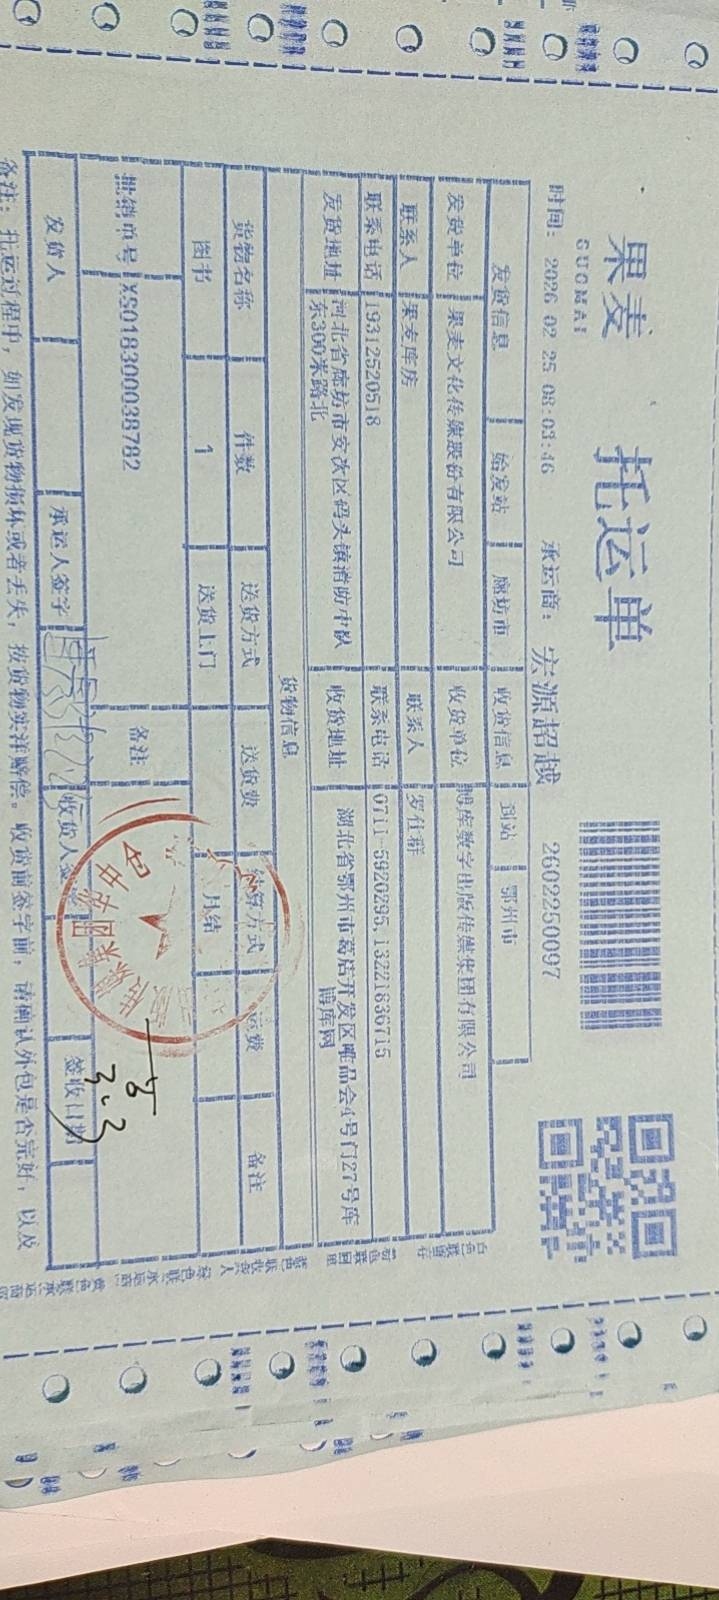 果麦
GUOMAI
托运单
时间: 2026 02 25 08:03:46 承运商: 宏源超越 2602250097
发货信息 始发站 廊坊市 收货信息 到站 鄂州市
发货单位 果麦文化传媒股份有限公司 收货单位 博库数字出版传媒集团有限公司
联系人 果麦库房 联系人 罗仕群
联系电话 19312520518 联系电话 0711-5920295,13221836715
发货地址 河北省廊坊市安次区码头镇消防中队东300米路北 收货地址 湖北省鄂州市葛店开发区唯品会4号门27号库博库网
货物信息
货物名称 件数 送货方式 送货费 结算方式 运费 备注
图书 1 送货上门 月结
批销单号 XS018300038782 备注
发货人 承运人签字 收货人签 签收日期
一方
3.3
备注: 托运过程中, 如发现货物损坏或者丢失, 按货物实洋赔偿。收货前签字前, 请确认外包是否完好, 以及